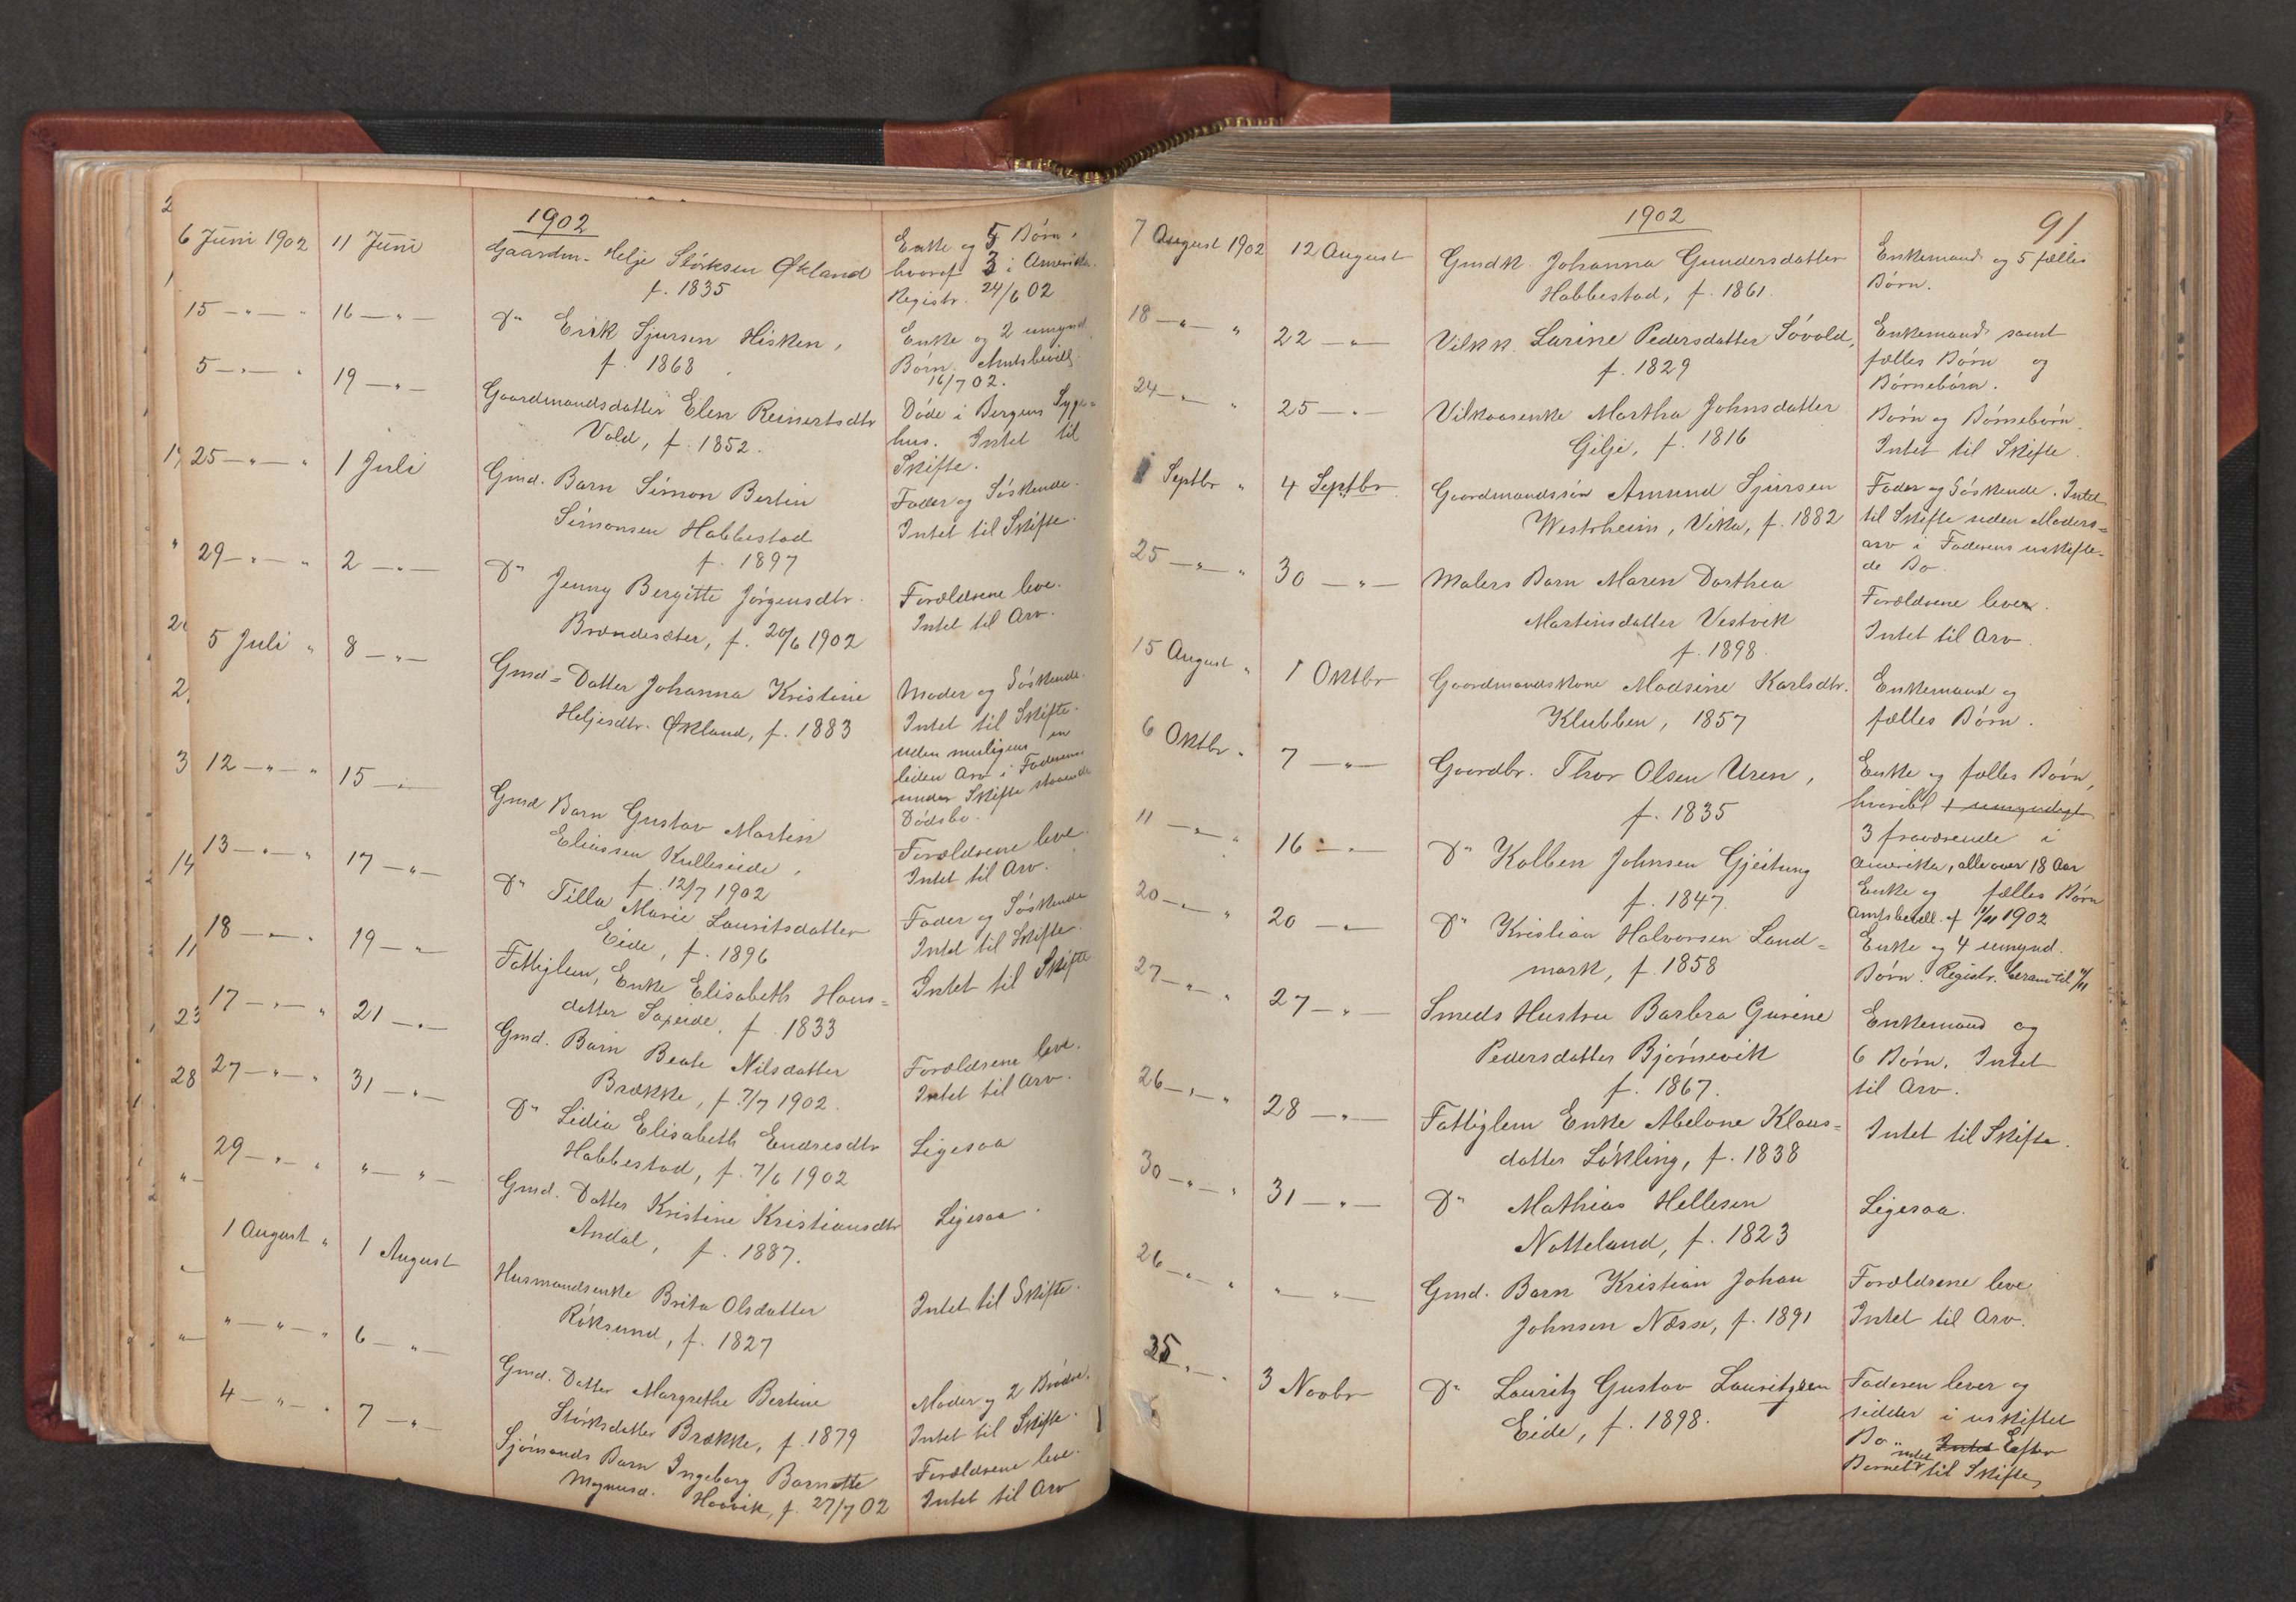 1902
6 Juni 1902 11 Juni Gaardm. Helje Störksen Økland Enke og 5 Børn,
f. 1835 hvoraf 3 i Amerika.
Registr. 24/6 02
15 — " — " 16 — " — Do Erik Sjursen Hisken, Enke og 2 umynd.
f. 1868 Børn. Amtsbevill.
16/7 02.
5 — " — " 19 — " — Gaardmandsdatter Elen Reinertsdtr Döde i Bergens Syge-
Vold, f. 1852. hus. Intet til
Skifte.
25 — " — " 1 Juli Gmd. Barn Simon Bertin Fader og Söskende.
Simonsen Habbestad Intet til Skifte.
f. 1897
29 — " — " 2 — " — Do Jenny Bergitte Jörgensdtr. Forældrene leve.
Brandesæter, f. 20/6 1902 Intet til Arv.
5 Juli " 8 — " — Gmd- Datter Johanna Kristine Moder og Söskende.
Heljesdtr. Økland, f. 1883 Intet til Skifte.
uden muligens en
liden Arv i Faderens
under Skifte staaende
Dödsbo.
12 — " — " 15 — " — Gmd Barn Gustav Martin Forældrene leve.
Eliassen Kulleseide, Intet til Arv.
f. 12/7 1902
13 — " — " 17 — " — Do Tilla Marie Lauritsdatter Fader og Söskende
Eide, f. 1896 Intet til Skifte.
18 — " — " 19 — " — Fattiglem, Enke Elisabeth Hans- Intet til Skifte
datter Sapeide, f. 1833
17 — " — " 21 — " — Gmd. Barn Beate Nilsdatter Forældrene leve.
Brække, f. 7/7 1902. Intet til Arv.
27 — " — " 31 — " — Do Lidia Elisabeth Endresdtr Ligesaa
Habbestad, f. 7/6 1902
29 — " — " " — " — Gmd. Datter Kristine Kristiansdtr Ligesaa.
Andal, f. 1887.
1 August " 1 August Husmandsenke Brita Olsdatter Intet til Skifte.
Röksund, f. 1827
" — " — " 6 — " — Gmd. Datter Margrethe Bertine Moder og 2 Brødre.
Störksdatter Brække, f. 1879 Intet til Skifte.
4 — " — " 7 — " — Sjömands Barn Ingeborg Barnette Forældrene leve.
Magnusd. Haavik, f. 27/7 02 Intet til Arv
1902 91
7 August 1902 12 August Gmdk. Johanna Gundersdatter Enkemand og 5 fælles
Habbestad, f. 1861. Børn.
18 — " — " 22 — " — Vilkk. Larine Pedersdatter Sövold, Enkemand samt
f. 1829 fælles Børn og
Börnebörn.
24 — " — " 25 — " — Vilkaarsenke Martha Johnsdatter Börn og Börnebörn.
Gilje, f. 1816 Intet til Skifte.
1 Septbr " 4 Septbr. Gaardmandssön Amund Sjursen Fader og Söskende. Intet
Westrheim, Vika, f. 1882 til Skifte uden Moders-
arv i Faderens uskifte-
de Bo.
25 — " — " 30 — " — Malers Barn Maren Dorthea Forældrene lever.
Martinsdatter Vestvik Intet til Arv.
f. 1898.
15 August " 1 Oktbr Gaardmandskone Madsine Karlsdtr. Enkemand og
Klubben, 1857 fælles Børn.
6 Oktbr. " 7 — " — Gaardbr. Thor Olsen Uren, Enke og fælles Børn,
f. 1835 hvoribl 1 umyndigt
3 fraværende i
Amerika, alle over 18 Aar
11 — " — " 16 — " — Do Kolben Johnsen Gjeitung Enke og fælles Børn
f. 1847. Amtsbevill. af 1902
20 — " — " 20 — " — Do Kristian Halvorsen Land- Enke og 4 umynd.
mark, f. 1858 Børn. Registr. beram. til
27 — " — " 27 — " — Smeds Hustru Barbra Gurine Enkemand og
Pedersdatter Bjørnevik 6 Børn. Intet
f. 1867. til Arv.
26 — " — " 28 — " — Fattiglem Enke Abelone Klaus- Intet til Skifte.
datter Lökling, f. 1838
30 — " — " 31 — " — Do Mathias Hellesen Ligesaa.
Natteland, f. 1823
26 — " — " " — " — Gmd. Barn Kristian Johan Forældrene leve
Johnsen Næsse, f. 1891 Intet til Arv.
25 — " — " 3 Novbr Do Lauritz Gustav Lauritzsen Faderen lever og
Eide, f. 1898. sidder i uskiftet
Bo. Intet Efter
Barnet intet til Skifte